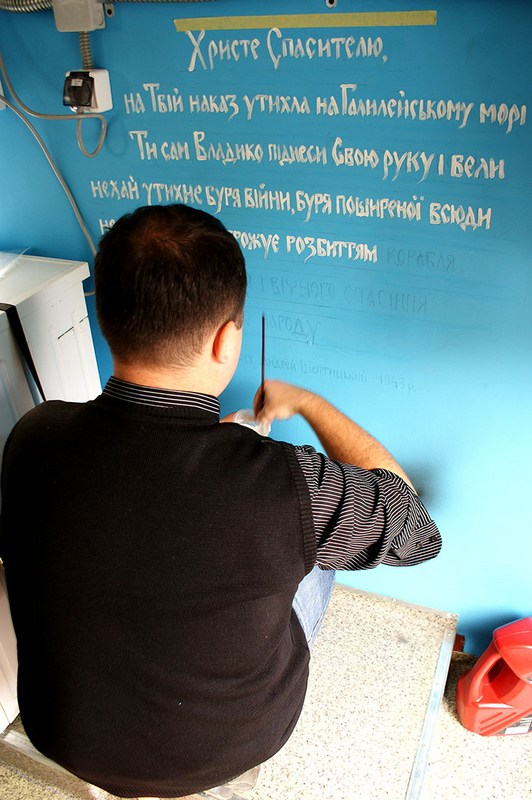 Христе Спасителю,
на Твій наказ утихла на Галилейському морі
Ти сам Владико піднеси Свою руку і вели
нехай утихне буря війни, буря поширеної всюди
розбиттям корабля
і вічного спасіння
народу
Андрей Шептицький 1943 р.